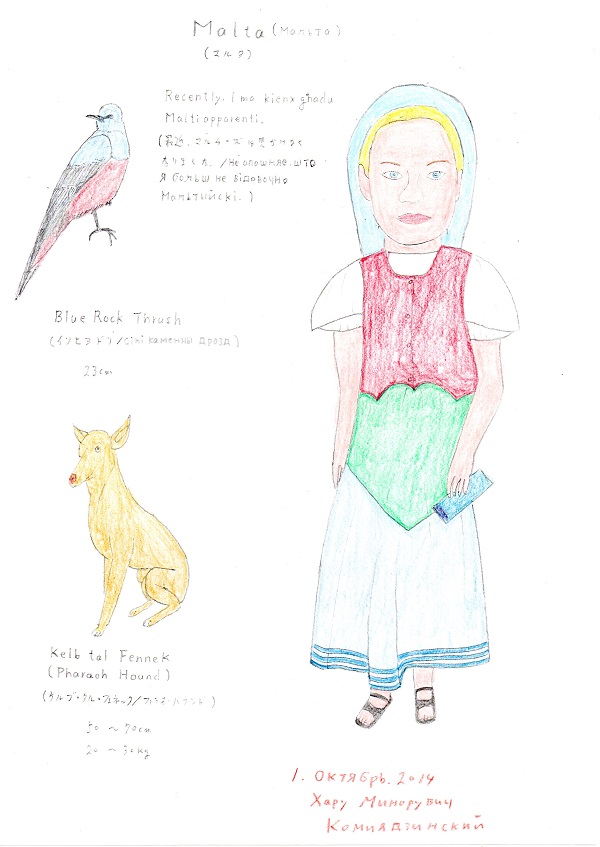 Malta (Мальта)
(マルタ)
Recently, I ma kienx għadu
Malti apparenti.
(最近、マルチーズは見かけなく
なりました。/Не апошняе, што
я больш не відавочна
Мальтыйскі.)
Blue Rock Thrush
(イソヒヨドリ/Сіні каменны дрозд)
23cm
Kelb tal Fennek
(Pharaoh Hound)
(ケルブ・タル・フェネック/ファラオ・ハウンド)
50 ~ 70cm
20 ~ 30kg
1. Октябрь. 2014
Хару Минорувич
Комиядзинский